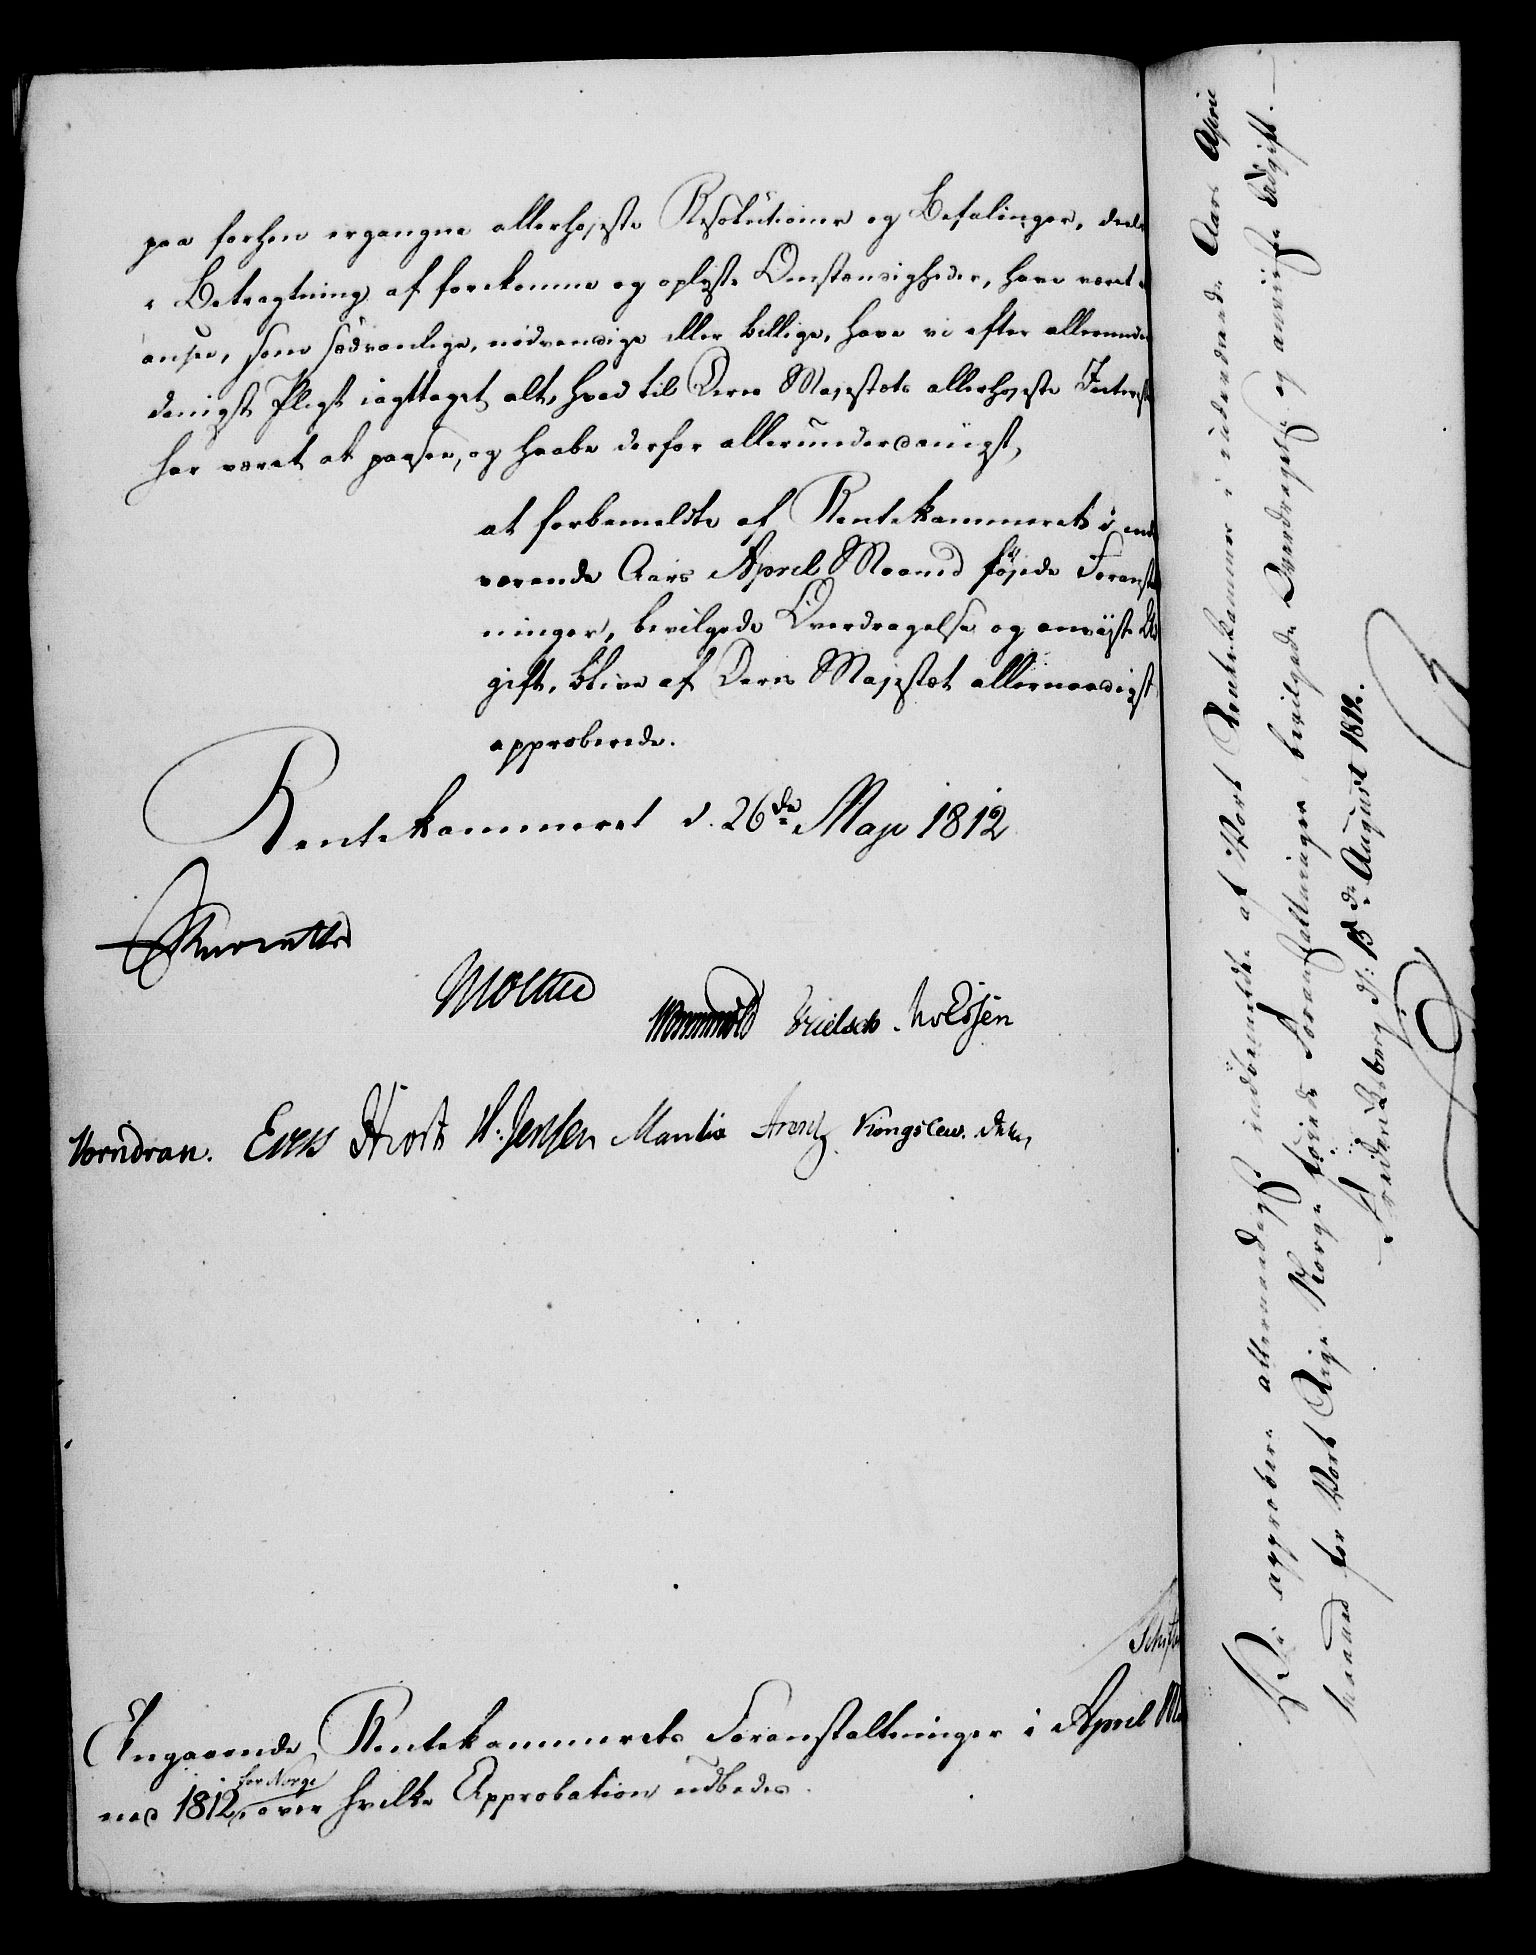 paa forhen ergangne allerhøjeste Resolutioner og Befalinger, deels
i Betragtning af forekomne og oplyste Omstændigheder, have været at
ansee, som sædvanlige, nødvendige eller billige, have vi efter allerunder
danigst Pligt iagttaget alt, hvad til Deres Majestæts allerhøjeste Interesse
har været at paasee, og haabe derfor allerunderdanigst,
at forbemeldte af Rentekammeret i inde
værende Aars April Maaned føjede Foranstalt
ninger, bevilgede Overdragelse og anviiste Ud
gift, blive af Deres Majestæt allernaadigst
approberede.
Rentekammeret d. 26de Maji 1812
Moltke
Wormskiold
Vorndran. Hiort H. Jensen Manthe Arentz Kongslew.
Angaaende Rentekammerets Foranstaltninger i April Maa
ned 1812, for Norge over hvilke Approbation udbedes.
Vi approbere allernaadigst indbemeldte af Vort Rentekammer i indeværende Aars April
Maaned for Vort Rige Norge føjede Foranstaltninger, bevilgede Overdragelse og anviiste Udgift.
Fredensborg d: 13de August 1812.